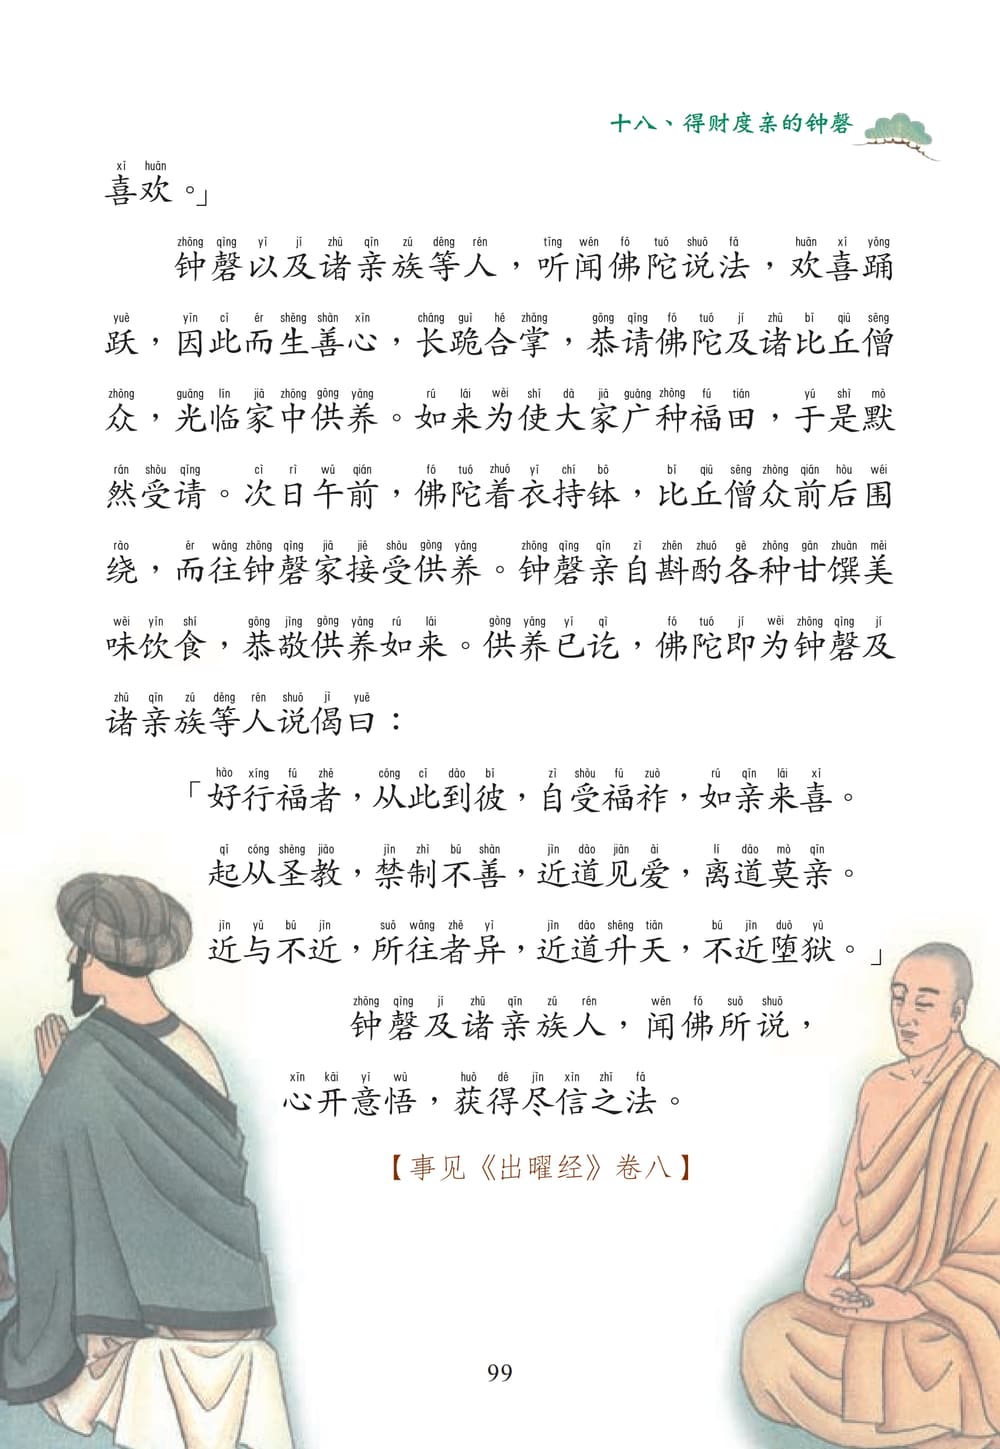 十八、得财度亲的钟磬
xǐ huān
喜欢。」
zhōng qìng yǐ jí zhū qīn zú děng rén tīng wén fó tuó shuō fǎ huān xǐ yǒng
钟磬以及诸亲族等人，听闻佛陀说法，欢喜踊
yuè yīn cǐ ér shēng shàn xīn cháng guì hé zhǎng gōng qǐng fó tuó jí zhū bǐ qiū sēng
跃，因此而生善心，长跪合掌，恭请佛陀及诸比丘僧
zhòng guāng lín jiā zhōng gòng yǎng rú lái wèi shǐ dà jiā guǎng zhòng fú tián yú shì mò
众，光临家中供养。如来为使大家广种福田，于是默
rán shòu qǐng cì rì wǔ qián fó tuó zhuó yī chí bō bǐ qiū sēng zhòng qián hòu wéi
然受请。次日午前，佛陀着衣持钵，比丘僧众前后围
rào ér wǎng zhōng qìng jiā jiē shòu gòng yǎng zhōng qìng qīn zì zhēn zhuó gè zhǒng gān zhuàn měi
绕，而往钟磬家接受供养。钟磬亲自斟酌各种甘馔美
wèi yǐn shí gōng jìng gòng yǎng rú lái gòng yǎng yǐ qì fó tuó jí wèi zhōng qìng jí
味饮食，恭敬供养如来。供养已讫，佛陀即为钟磬及
zhū qīn zú děng rén shuō jì yuē
诸亲族等人说偈曰：
hào xíng fú zhě cóng cǐ dào bǐ zì shòu fú zuò rú qīn lái xǐ
「好行福者，从此到彼，自受福祚，如亲来喜。
qǐ cóng shèng jiào jìn zhì bú shàn jìn dào jiàn ài lí dào mò qīn
起从圣教，禁制不善，近道见爱，离道莫亲。
jìn yǔ bú jìn suǒ wǎng zhě yì jìn dào shēng tiān bú jìn duò yù
近与不近，所往者异，近道升天，不近堕狱。」
zhōng qìng jí zhū qīn zú rén wén fó suǒ shuō
钟磬及诸亲族人，闻佛所说，
xīn kāi yì wù huò dé jìn xìn zhī fǎ
心开意悟，获得尽信之法。
【事见《出曜经》卷八】
99